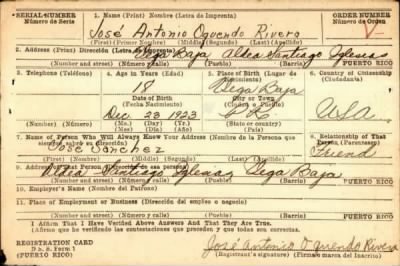 SERIAL NUMBER 1. Name (Print) Nombre (Letra de Imprenta) ORDER NUMBER
Número de Serie Número de Orden
José Antonio Oquendo Rivera V-
(First) (Primer Nombre) (Middle) (Segundo) (Last) (Apellido)
2. Address (Print) Dirección (Letra de Imprenta)
Vega Baja Aldea Santiago Iglesias
PUERTO RICO
3. Telephone (Teléfono) 4. Age in Years (Edad) 5. Place of Birth (Lugar de Nacimiento) 6. Country of Citizenship (Ciudadanía)
18 Vega Baja
Date of Birth City or Town
(Fecha Nacimiento) (Ciudad o Pueblo)
Dec 23 1923 USA
(Mo.) (Day) (Yr.) State or country
(Mes) (Día) (Año) (Estado o país)
7. Name of Person Who Will Always Know Your Address (Nombre de la Persona que siempre sabrá su dirección) 8. Relationship of That Person (Parentesco)
José Sánchez Friend
(First) (Middle) (Segundo) (Last) (Apellido)
9. Address of That Person (Dirección de esa persona)
Aldea Santiago Iglesias Vega Baja
PUERTO RICO
10. Employer's Name (Nombre del Patrono)
11. Place of Employment or Business (Dirección del empleo o negocio)
PUERTO RICO
I Affirm That I Have Verified Above Answers And That They Are True.
(Afirmo que he verificado las contestaciones que preceden y que todas son verdaderas).
REGISTRATION CARD
D. S. S. Form 1
(PUERTO RICO)
José Antonio Oquendo Rivera
(Registrant's signature) (Firma o marca del Inscrito)